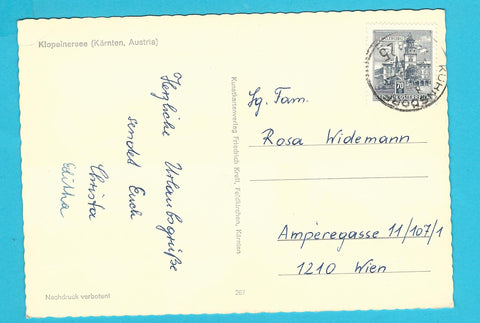 Klopeinersee (Kärnten, Austria)
Herzliche Urlaubsgrüße
sendet Euch
Christa
Editha
Nachdruck verboten!
Kunstkartenverlag Friedrich Kreit, Feldkirchen, Kärnten
267
KÜHNSDORF
70
Sg. Fam.
Rosa Widemann
Ampèregasse 11/107/1
1210 Wien